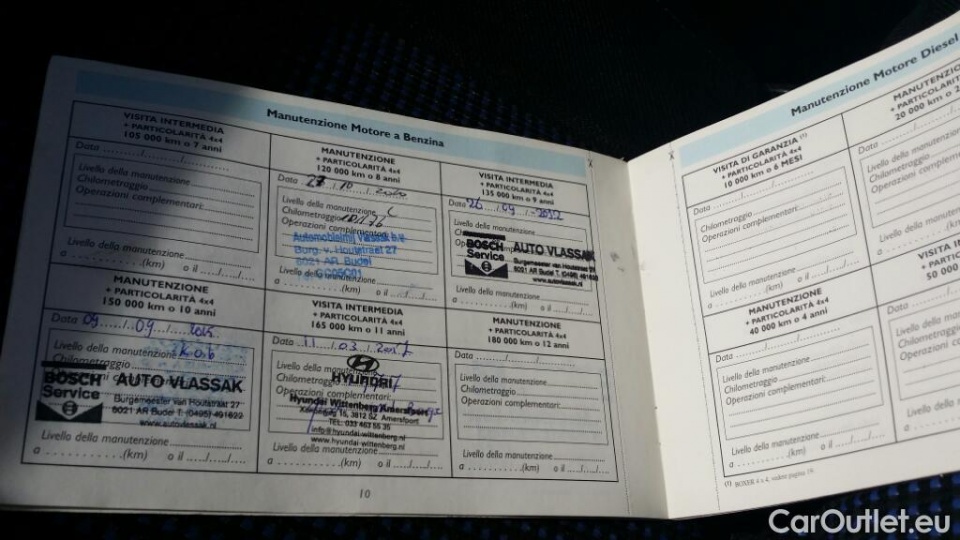 Manutenzione Motore a Benzina
VISITA INTERMEDIA
+ PARTICOLARITÀ 4x4
105 000 km o 7 anni
Data ......./......./.......
Livello della manutenzione
Chilometraggio
Operazioni complementari:
Livello della manutenzione
a ..........(km) o il ...../...../.....
MANUTENZIONE
+ PARTICOLARITÀ 4x4
120 000 km o 8 anni
Data 27 / 10
Livello della manutenzione C
Chilometraggio
Operazioni complementari:
Automobielbedrijf Vlassak b.v.
Burg. v. Houtstraat 27
6021 AR Budel
Livello della manutenzione
a ..........(km) o il ...../...../.....
VISITA INTERMEDIA
+ PARTICOLARITÀ 4x4
135 000 km o 9 anni
Data 26 / 09
Livello della manutenzione
BOSCH Service
AUTO VLASSAK
Burgemeester van Houtstraat 27
6021 AR Budel T. (0495) 491622
www.autovlassak.nl
a ..........(km) o il ...../...../.....
MANUTENZIONE
+ PARTICOLARITÀ 4x4
150 000 km o 10 anni
Data 09 / 09 / 2015
Livello della manutenzione
Chilometraggio
BOSCH Service
AUTO VLASSAK
Burgemeester van Houtstraat 27
6021 AR Budel T. (0495) 491622
www.autovlassak.nl
Livello della manutenzione
a ..........(km) o il ...../...../.....
VISITA INTERMEDIA
+ PARTICOLARITÀ 4x4
165 000 km o 11 anni
Data 11 / 03 / 2017
Livello della manutenzione
Chilometraggio
HYUNDAI
Hyundai Wittenberg Amersfoort
16, 3812 SZ Amersfoort
TEL. 033 463 55 35
info@hyundai-wittenberg.nl
www.hyundai-wittenberg.nl
Livello della manutenzione
a ..........(km) o il ...../...../.....
MANUTENZIONE
+ PARTICOLARITÀ 4x4
180 000 km o 12 anni
Data ......./......./.......
Livello della manutenzione
Chilometraggio
Operazioni complementari:
Livello della manutenzione
a ..........(km) o il ...../...../.....
10
Manutenzione Motore Diesel
VISITA DI GARANZIA (1)
+ PARTICOLARITÀ 4x4
10 000 km o 6 MESI
Data ......./......./.......
Chilometraggio
Operazioni complementari:
Livello della manutenzione
a ..........(km) o il ...../...../.....
MANUTENZIONE
+ PARTICOLARITÀ 4x4
40 000 km o 4 anni
Data ......./......./.......
Livello della manutenzione
Chilometraggio
Operazioni complementari:
Livello della manutenzione
a ..........(km) o il ...../...../.....
MANUTENZIONE
+ PARTICOLARITÀ
20 000 km o 2
Data
Livello della
Chilometraggio
Operazioni
Livello della
a
VISITA
50 000
(1) BOXER 4 x 4, vedere pagina 14.
CarOutlet.eu